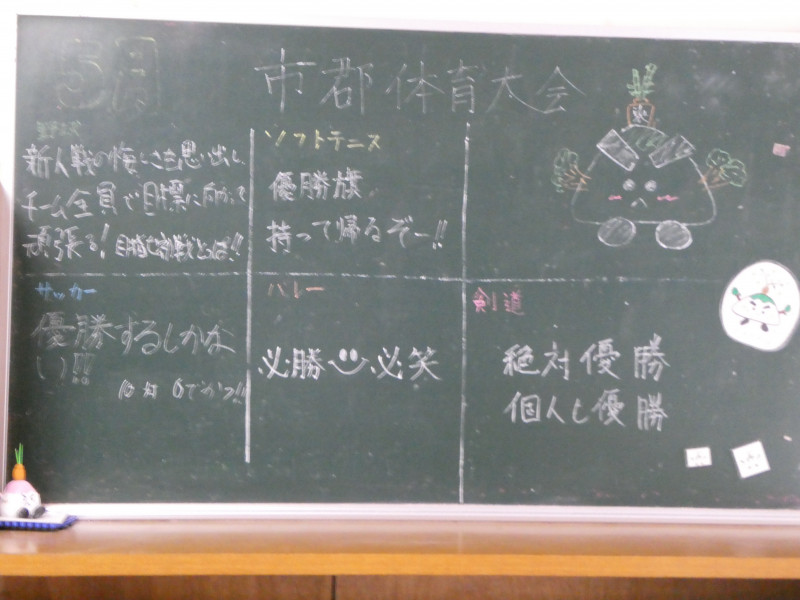 5月
市郡体育大会
野球
新人戦の悔しさを思い出し、
チーム全員で目標に向かって
頑張る!
ソフトテニス
優勝旗
持って帰るぞー!!
サッカー
優勝するしかな
い!!
バレー
必勝 必笑
剣道
絶対優勝
個人も優勝